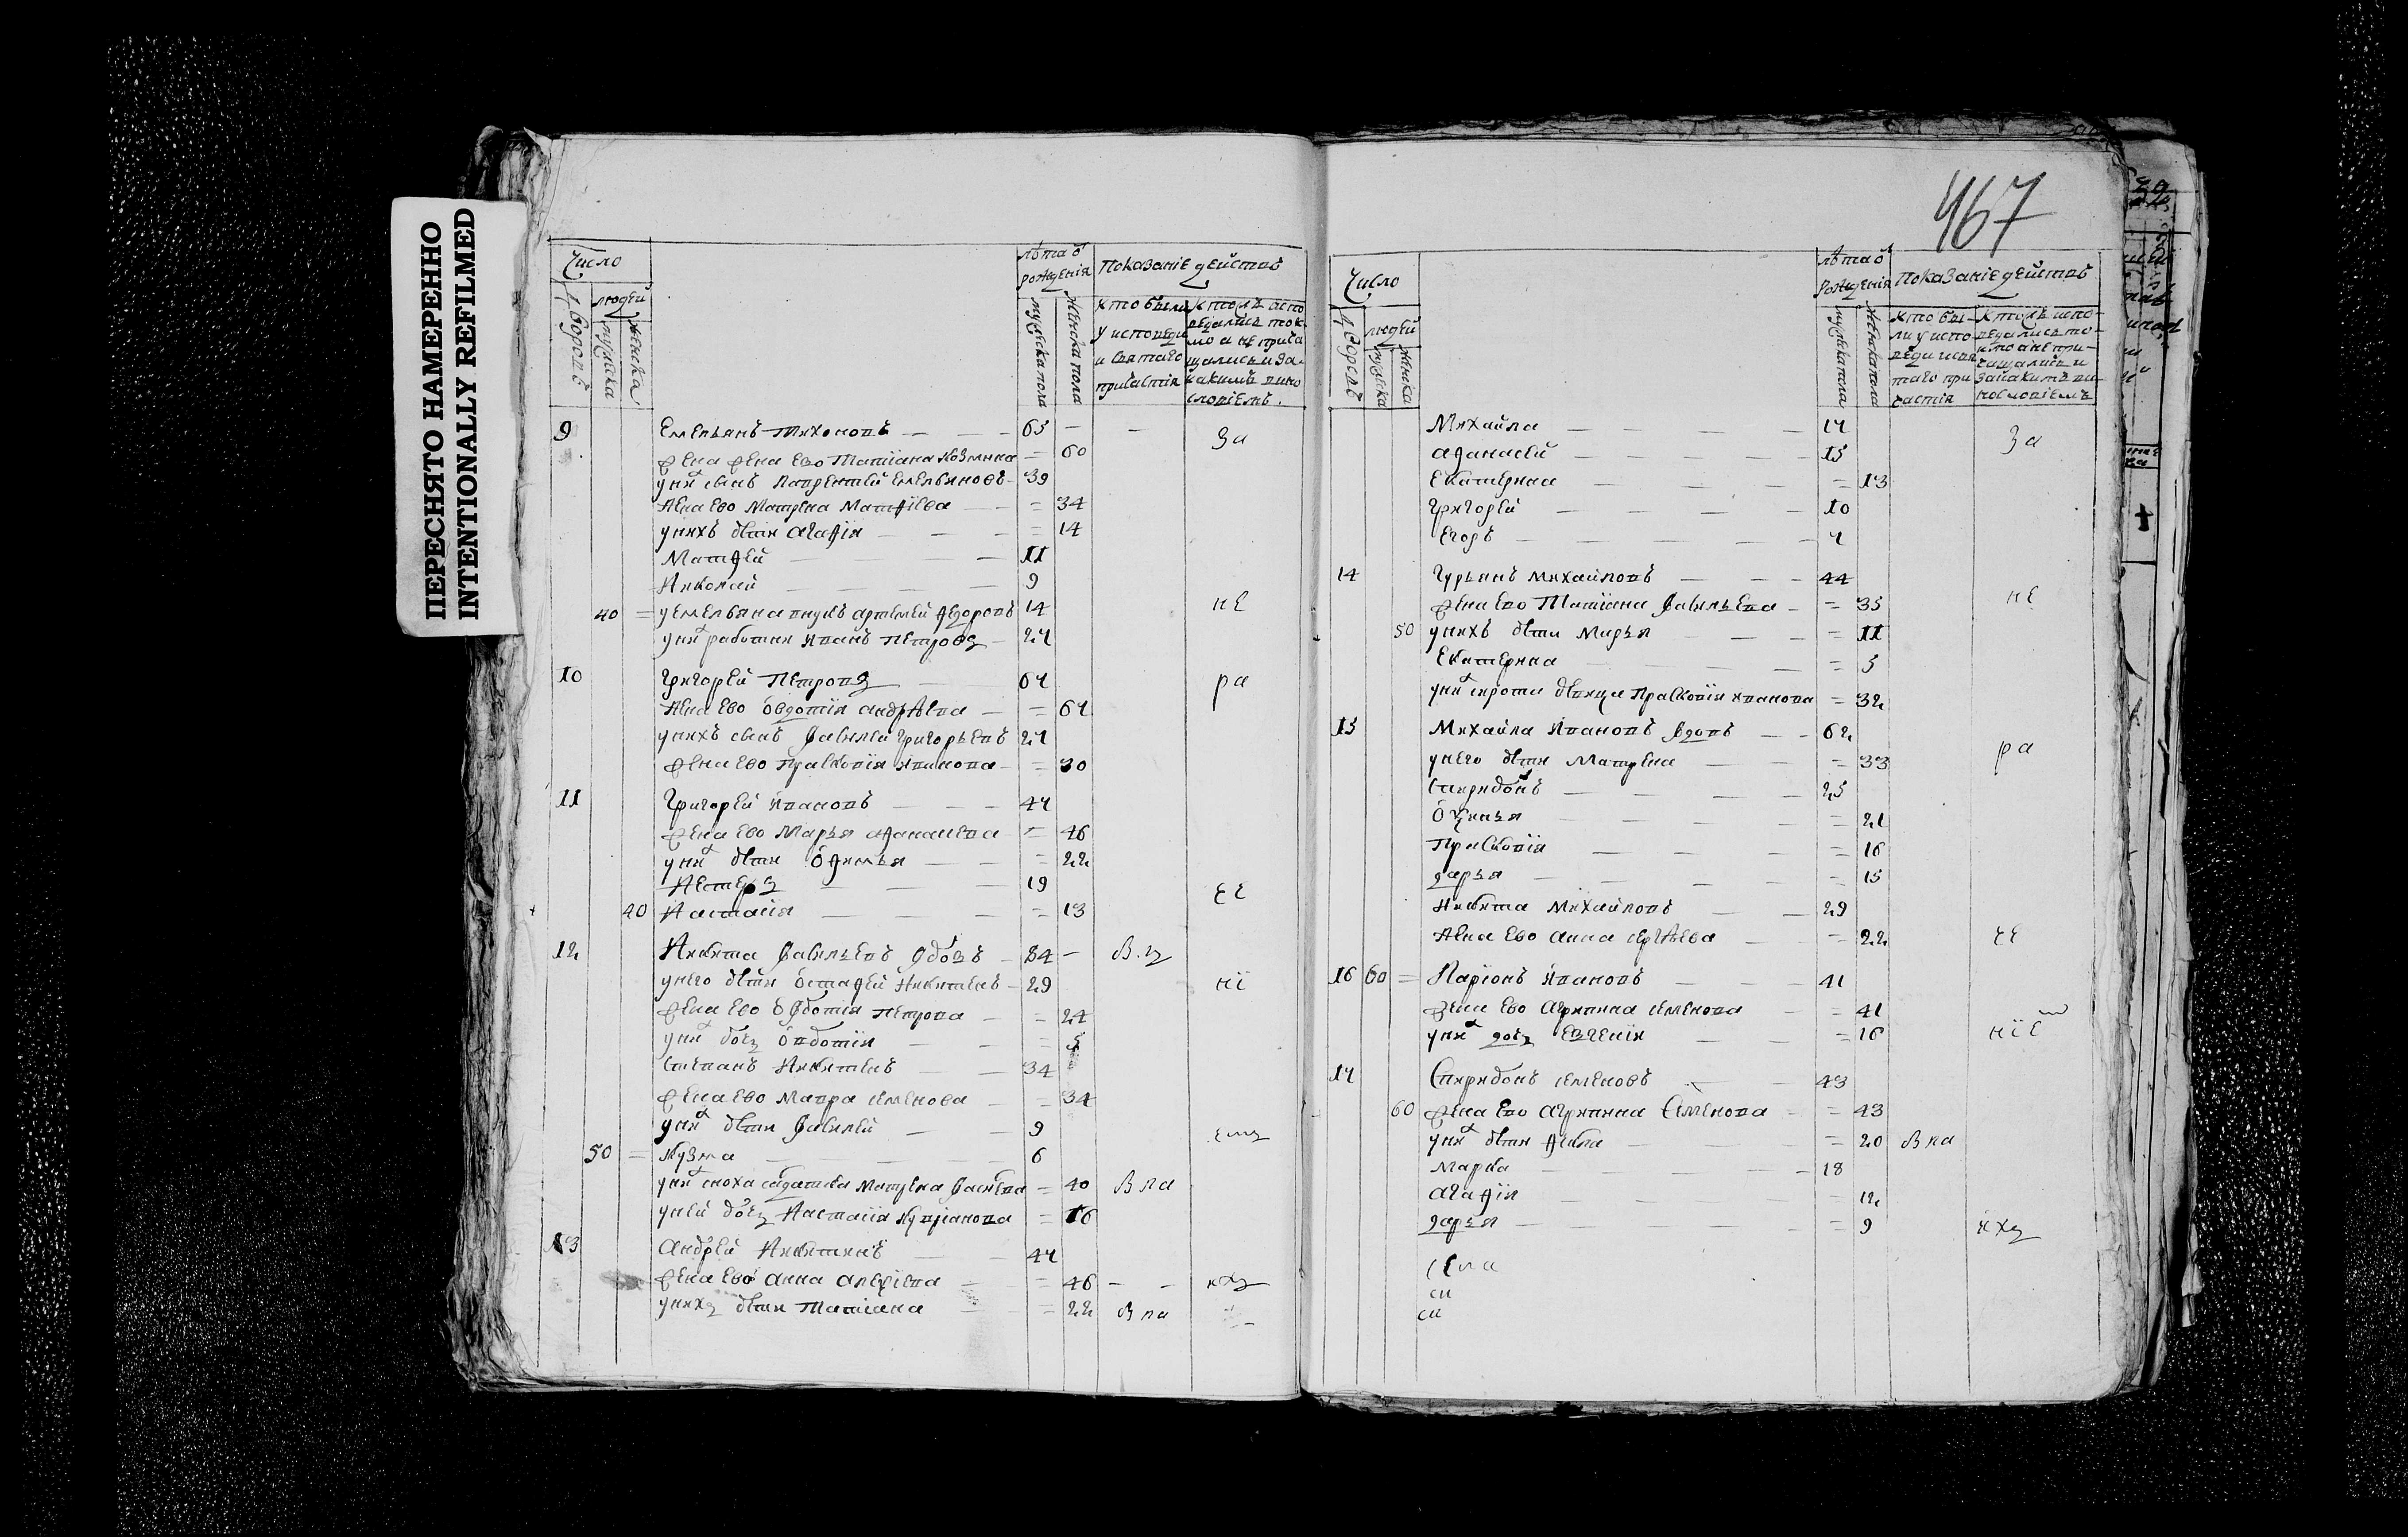 ПЕРЕСНЯТО НАМЕРЕННО
INTENTIONALLY REFILMED
Число
людей
дворовъ
мужска
женска
лѣта ѿ рождения
мужска пола
женска пола
Показание действъ
кто были у исповеди и святаго причастия
кто лъ исповедалисъ токмо а не причащалисъ и за какимъ винословиемъ.
9 Емельянъ Тихоновъ 65
жена ево Татиана Козмина 60 За
у них сынъ Лаврентей Емельяновъ 39
жена ево Матрена Матѳиева = 34
у нихъ дѣти Агаѳия = 14
Матѳей II
Николай 9
40 = у Емельяна внукъ Артемей Ѳедоровъ 14 не
у них работни Иванъ Петровъ 24
10 Григорей Петровъ 64 ра
жена ево Овдотия Андрѣева = 64
у нихъ сынъ Василей Григорьевъ 24
жена ево Прасковия Иванова = 30
II Григорей Ивановъ 44
жена ево Марья Аѳанасева = 46
у них дѣти Оѳимья = 22
Нестеръ 19
40 Настасия = 13 че
12 Никита Васильевъ вдовъ 84 В.ц
у него дѣти Остаѳей Никитевъ 29 нї
жена ево Овдотия Петрова = 24
у них дочь Овдотия = 5
Степанъ Никитевъ 34
жена ево Мавра Семенова = 34
у них дѣти Василей 9
50 = Кузма 6
у них сноха салдатска Матрена Васиева = 40 В ла
у ней дочь Настасия Куприанова = 16
13 Андрей Никитинъ 44
жена ево Анна Алеѯиева = 46 нхъ
у нихъ дѣти Татиана = 22 В ла
467
Число
людей
дворовъ
мужска
женска
лѣта ѿ рождения
мужска пола
женска пола
Показание действъ
кто были у исповеди и святаго причастия
кто лъ исповедалисъ токмо а не причащалисъ и за какимъ винословиемъ
Михайла 17
Аѳанасей 15 За
Екатерина = 13
Григорей 10
Егоръ 4
14 Гурьянъ Михайловъ 44
жена ево Татиана Васильева = 35 не
50 у нихъ дѣти Марья = II
Екатерина = 5
у них сирота дѣвица Прасковия Иванова = 32
15 Михайла Ивановъ вдовъ 62
у него дѣти Матрена = 33 ра
Спиридонъ 25
= 21
Прасковия = 16
дарья = 15
Никита Михайловъ 29
жена ево Анна Сергѣева = 22 че
16 60 = Ларионъ Ивановъ 41
жена ево Агрипина Семенова = 41
у них дочь Евгения = 16 нїе
17 Спиридонъ Семеновъ 43
60 жена ево Агрипина Семенова = 43
у них дѣти Ѳекла = 20 В ла
Марка 18
Агаѳия = 12
дарья = 9 нхъ
села
си
си